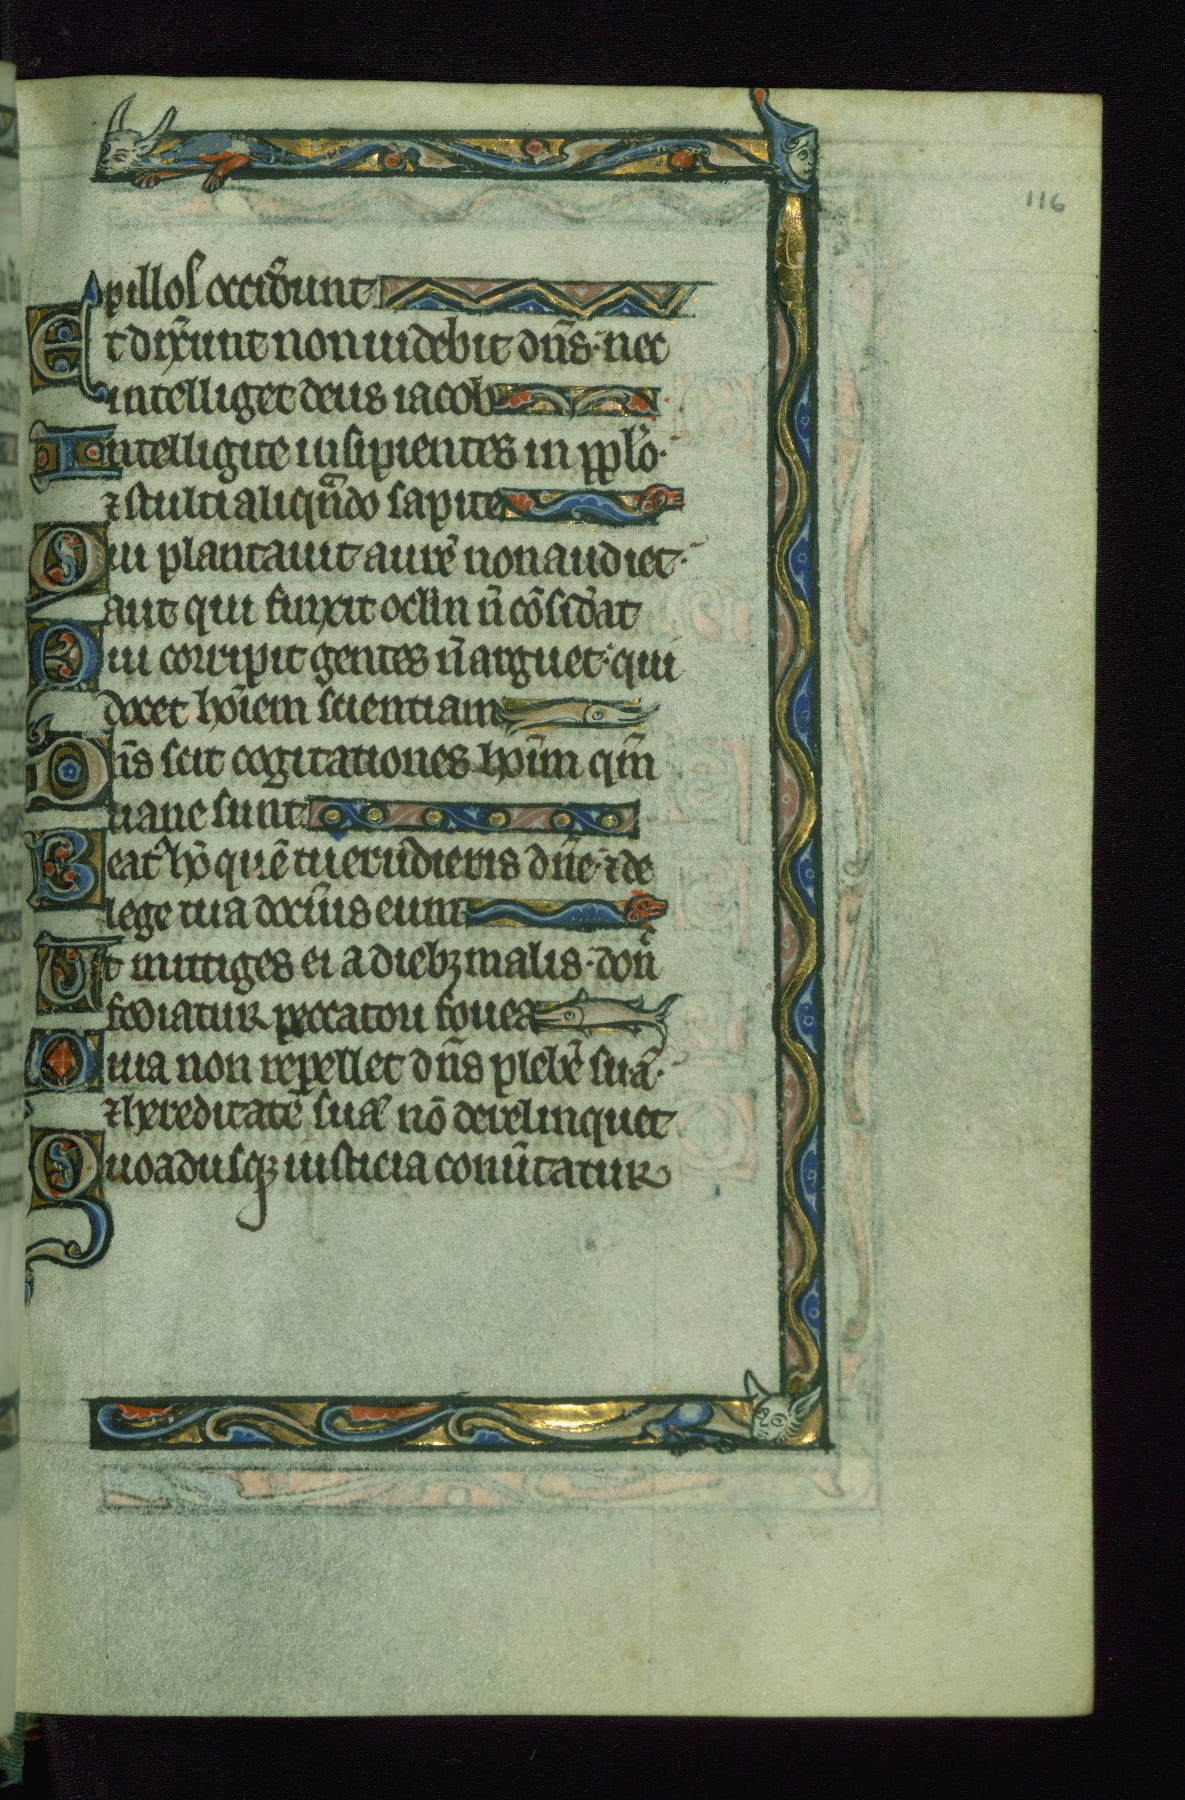 116
pillos occid̾unt
Et dix̾unt non uidebit dn̄s· nec
intelliget deus iacob
Intelligite insipientes in pp̄lo·
⁊ stulti aliqn̄do sapite
Qui plantauit aurē non audiet·
aut qui finxit oclm̄ n̄ cōsid̾at
Qui corripit gentes n̄ arguet· qui
docet hōiem scientiam
Dn̄s scit cogitationes hoīm qm̄
uane sunt
Beatꝰ hō quē tu erudieris dn̄e· ⁊ de
lege tua docu̾is eum
Ut mittiges ei a diebꝫ malis· don̄
fodiatur peccatori fouea
Quia non repellet dn̄s plebē suā·
⁊ hereditatē suā nō derelinquet
Quoadusqꝫ iusticia conu̾tatur